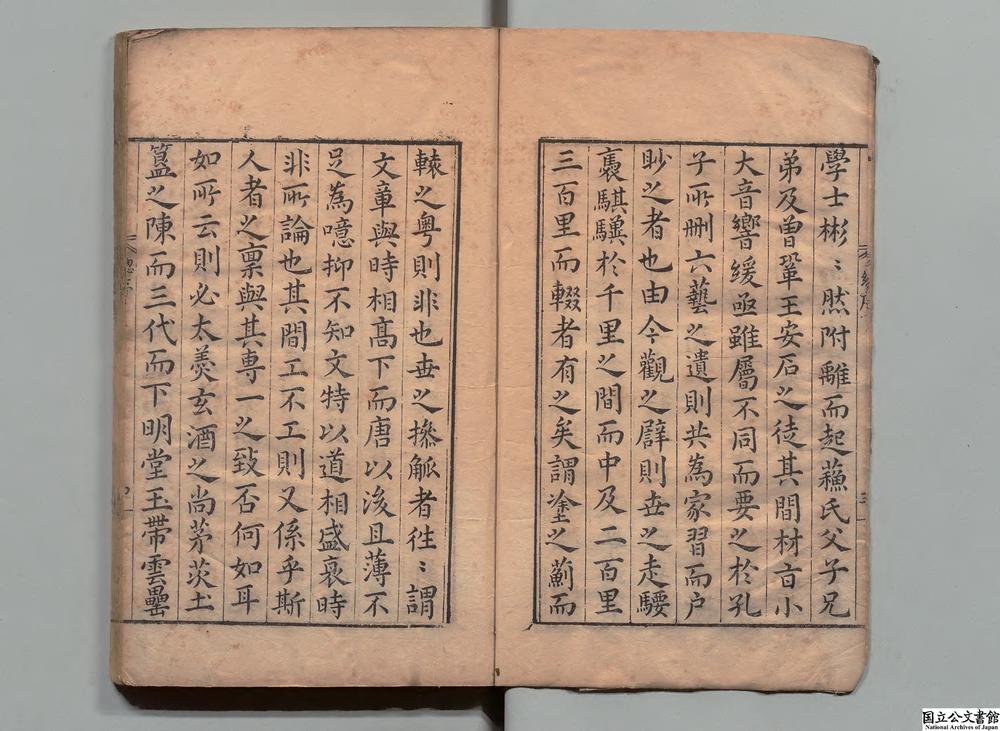 學士彬〻然附離而起蘓氏父子兄
弟及曾鞏王安石之徒其間材旨小
大音響緩亟雖屬不同而要之於孔
子所刪六藝之遺則共為家習而户
眇之者也由今觀之譬則世之走騕
褭騏驥於千里之間而中及二百里
三百里而輟者有之矣謂塗之薊而
轅之粤則非也世之摻觚者徃〻謂
文章與時相髙下而唐以後且薄不
足為噫抑不知文特以道相盛衰時
非所論也其間工不工則又係乎斯
人者之禀與其專一之致否何如耳
如所云則必太羹玄酒之尚茅茨土
簋之陳而三代而下明堂玉帶雲罍
總序
國立公文書館
National Archives of Japan